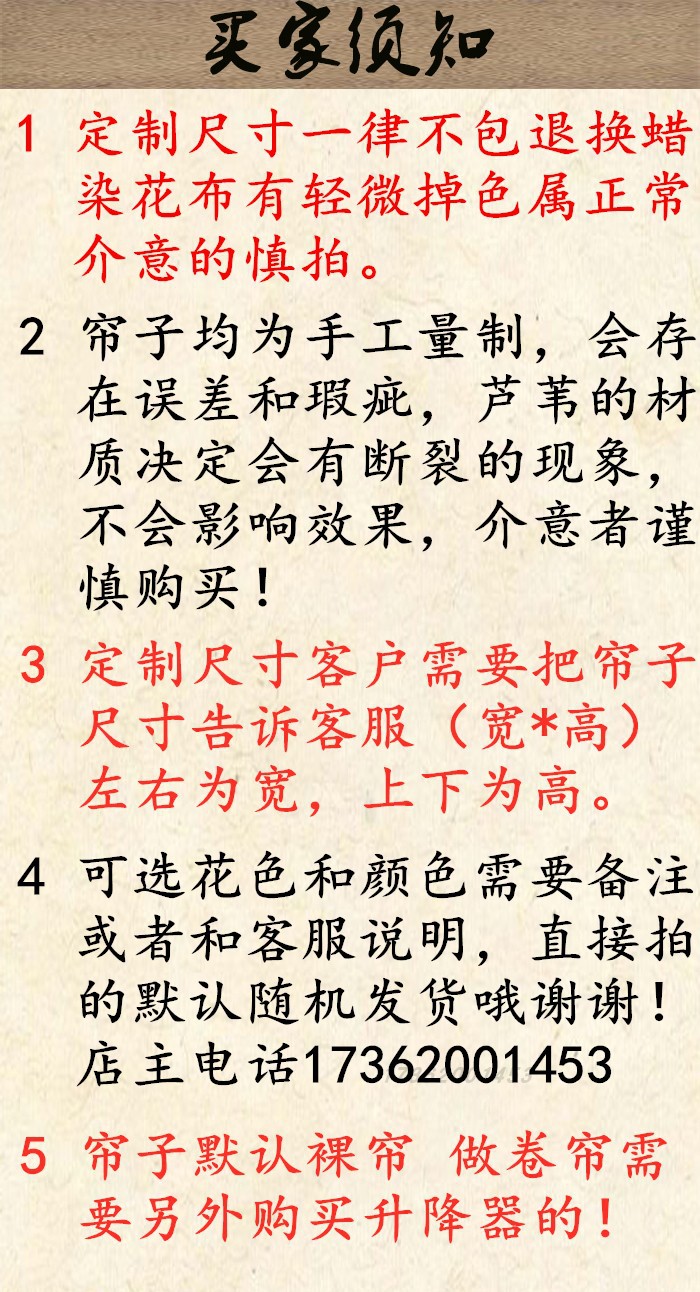 买家须知
1 定制尺寸一律不包退换蜡
染花布有轻微掉色属正常
介意的慎拍。
2 帘子均为手工量制，会存
在误差和瑕疵，芦苇的材
质决定会有断裂的现象，
不会影响效果，介意者谨
慎购买！
3 定制尺寸客户需要把帘子
尺寸告诉客服（宽*高）
左右为宽，上下为高。
4 可选花色和颜色需要备注
或者和客服说明，直接拍
的默认随机发货哦谢谢！
店主电话17362001453
5 帘子默认裸帘 做卷帘需
要另外购买升降器的！